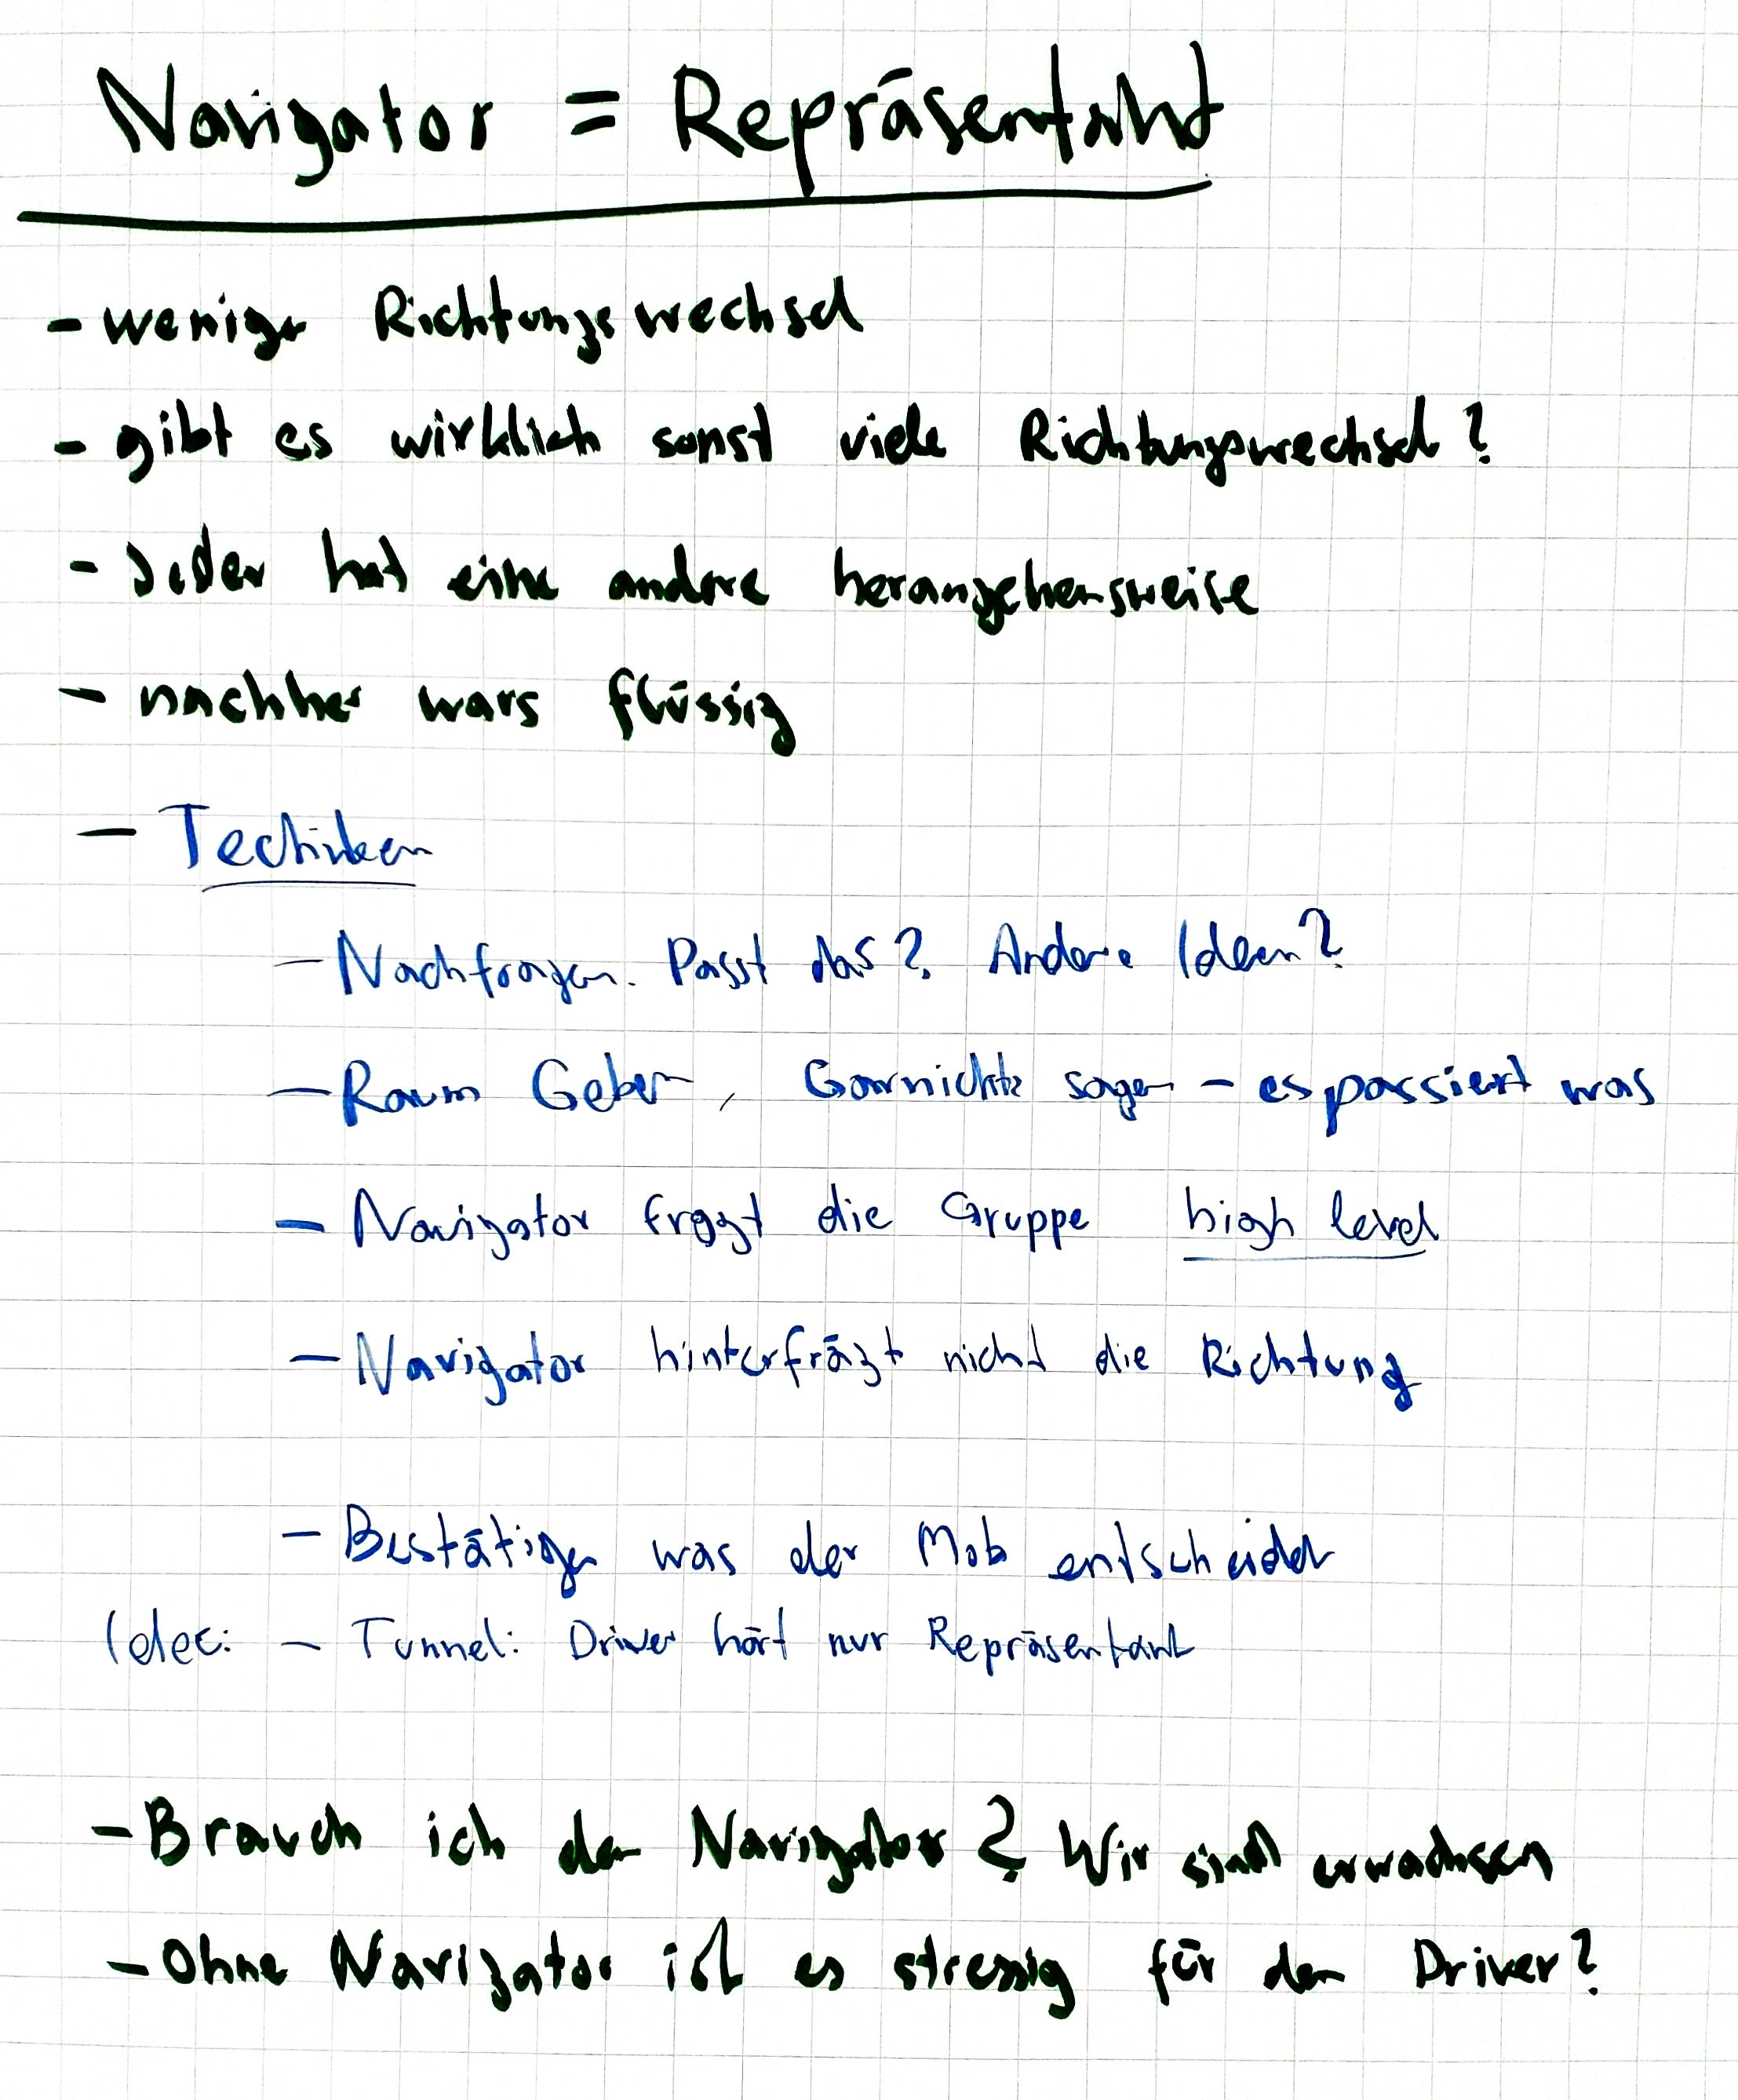 Navigator = Repräsentant
- weniger Richtungswechsel
- gibt es wirklich sonst viele Richtungswechsel?
- Jeder hat eine andere herangehensweise
- nachher wars flüssig
- Techniken
- Nachfragen. Passt das? Andere Ideen?
- Raum Geben, Garnichts sagen - es passiert was
- Navigator fragt die Gruppe high level
- Navigator hinterfrägt nicht die Richtung
- Bestätigen was der Mob entscheidet
Idee: - Tunnel: Driver hört nur Repräsentant
- Brauch ich den Navigator? Wir sind erwachsen
- Ohne Navigator ist es stressig für den Driver?